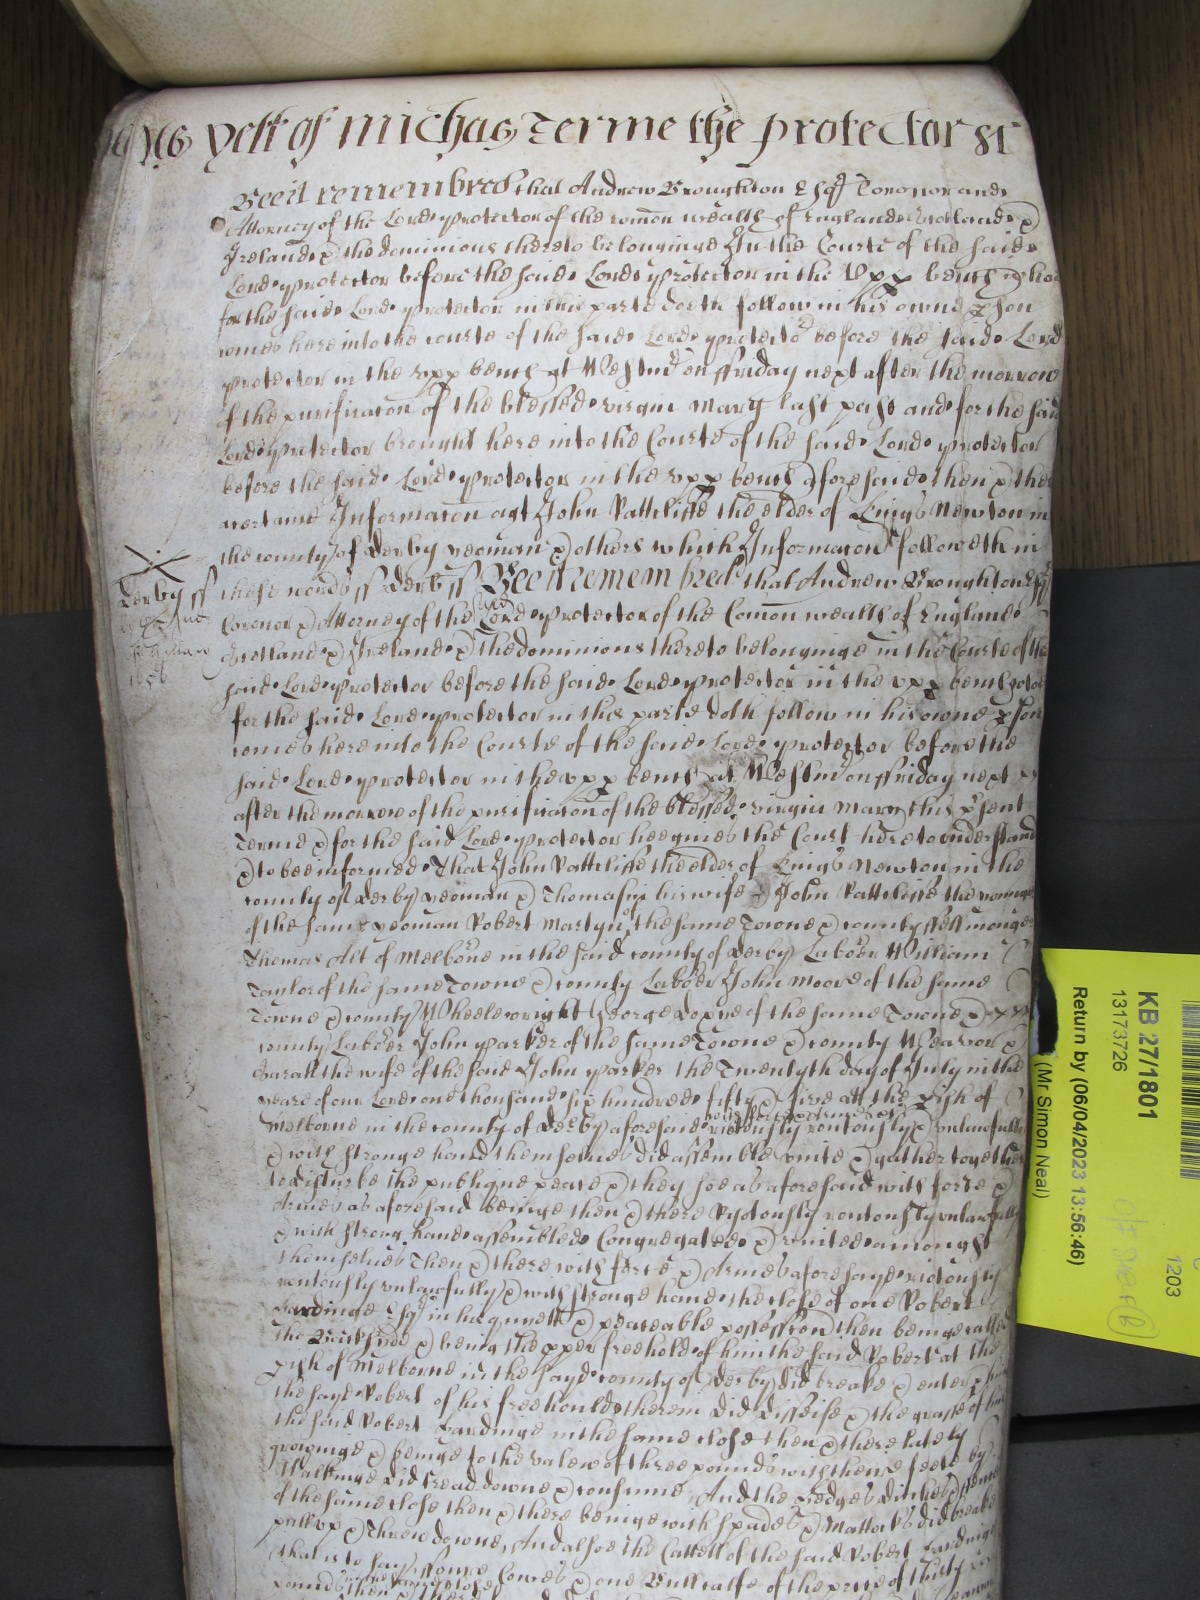 Yett of Michas Terme the Protector &
Bee it remembred that Andrew Broughton Esqr Coronor and
Attorney of the Lord Protector of the comon wealth of England Scotland &
Ireland & the dominions thereto belonginge In the Courte of the said
Lord Protector before the said Lord Protector in the Upp bench who
for the said Lord Protector in this parte doeth follow in his owne pson
comes here into the courte of the said Lord Protector before the said Lord
Protector in the upp bench at Westmr on ffriday next after the morrow
of the purificacon of the blessed virgin Mary last past and for the said
Lord Protector brought here into the Courte of the said Lord Protector
before the said Lord Protector in the upp bench aforesaid then & there
a certaine Informacon agt John Rattcliffe the elder of Kings Newton in
the county of Derby yeoman & others which Informacon followeth in
these words ss Derb ss Bee it remembred that Andrew Broughton Esqr
Derby ss
Coronor & Attorney of the Lord Protector of the Comon wealth of England
Scotland & Ireland & the dominions thereto belonginge in the Courte of the
1656
said Lord Protector before the said Lord Protector in the upp bench who
for the said Lord Protector in this parte doth follow in his owne pson
comes here into the Courte of the said Lord Protector before the
said Lord Protector in the upp bench at Westmr on ffriday next
after the morrow of the purificacon of the blessed virgin Mary this psent
Terme & for the said Lord Protector hee gives the Court here to understand
& to bee informed That John Rattcliffe the elder of Kings Newton in the
county of Derby yeoman & Thomasin his wife John Rattcliffe the younger
of the same yeoman Robert Martyn of the same Towne & county ffellmonger
Thomas Alt of Melborne in the said county of Derby Laborer William
Taylor of the same Towne & county Laborer John Moore of the same
Towne & county Wheelewright George of the same Towne &
county Laborer John Parker of the same Towne & county Weavor &
Sarah the wife of the said John Parker the Twentyth day of July in the
yeare of our Lord one thousand six hundred fifty & five att the pish of
Melborne in the county of Derby aforesaid riotously routously & unlawfully
& with stronge hand themselves did assemble unite & gather together
to disturbe the publique peace & they soe as aforesaid with force &
Armes as aforesaid beinge then & there Ryotously routously unlawfully
& with strong hand assembled Congregated & united amongst
themselves Then & there with force & Armes aforesayd riotously
routously unlawfully & with stronge hand the close of one Robert
Hardinge Esqr in his quiett & peaceable possession then beinge called
the & being the pper freehold of him the said Robert at the
pish of Melborne in the sayd county of Derby did breake & enter & him
the sayd Robert of his freehould therein did disseise & the grasse of him
the said Robert Hardinge in the same close then & there lately
growinge & beinge to the valew of three pounds with theire feete by
walkinge did tread downe & consume And the hedges ditches & fences
of the same close then & there beinge with spades & Mattocks did breake
pull up & throw downe, And alsoe the Cattell of the said Robert Hardinge
that is to say ffoure Cowes & one Bull calfe of the price of thirty
pounds then & there
KB 27/1801
13173726
Return by (06/04/2023 13:56:46)
(Mr Simon Neal)
1203